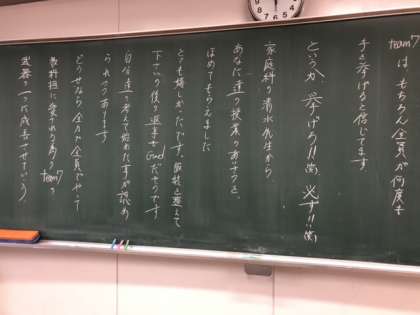 team7は もちろん 全員が何度も
手を挙げると信じてます
というか 挙げろ!!(笑) 必ず!!(笑)
家庭科の清水先生から
あなた達の授業のあいさつを
ほめてもらえました
とても嬉しかったです。 号令を
下さい の後の返事が Good だそうです
自分達で考えて始めた
られそうあります
どうせなら 全力で全員でやって
教科担に愛される為の team7の
武器の一つに成長させていこう